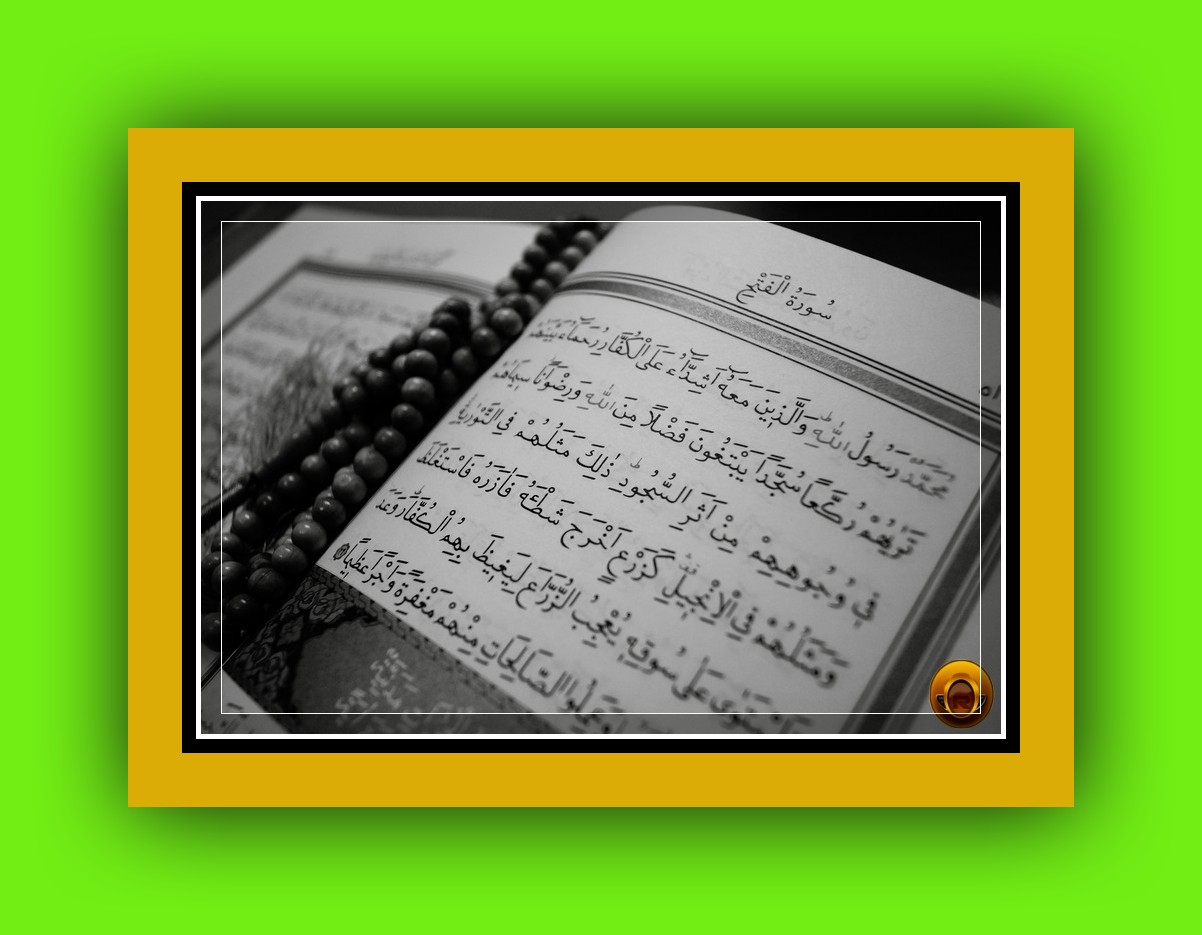 سُورَةُ الْفَتْحِ
مُحَمَّدٌ رَسُولُ اللّٰهِ وَالَّذ۪ينَ مَعَهُٓ اَشِدَّٓاءُ عَلَى الْكُفَّارِ رُحَمَٓاءُ بَيْنَهُمْ
تَرٰيهُمْ رُكَّعًا سُجَّدًا يَبْتَغُونَ فَضْلًا مِنَ اللّٰهِ وَرِضْوَانًا س۪يمَاهُمْ
ف۪ي وُجُوهِهِمْ مِنْ اَثَرِ السُّجُودِ ذٰلِكَ مَثَلُهُمْ فِي التَّوْرٰيةِ
وَمَثَلُهُمْ فِي الْاِنْج۪يلِ كَزَرْعٍ اَخْرَجَ شَطْـَٔهُ فَاٰزَرَهُ فَاسْتَغْلَظَ
فَاسْتَوٰى عَلٰى سُوقِه۪ يُعْجِبُ الزُّرَّاعَ لِيَغ۪يظَ بِهِمُ الْكُفَّارَ وَعَدَ
وَعَمِلُوا الصَّالِحَاتِ مِنْهُمْ مَغْفِرَةً وَاَجْرًا عَظ۪يمًا